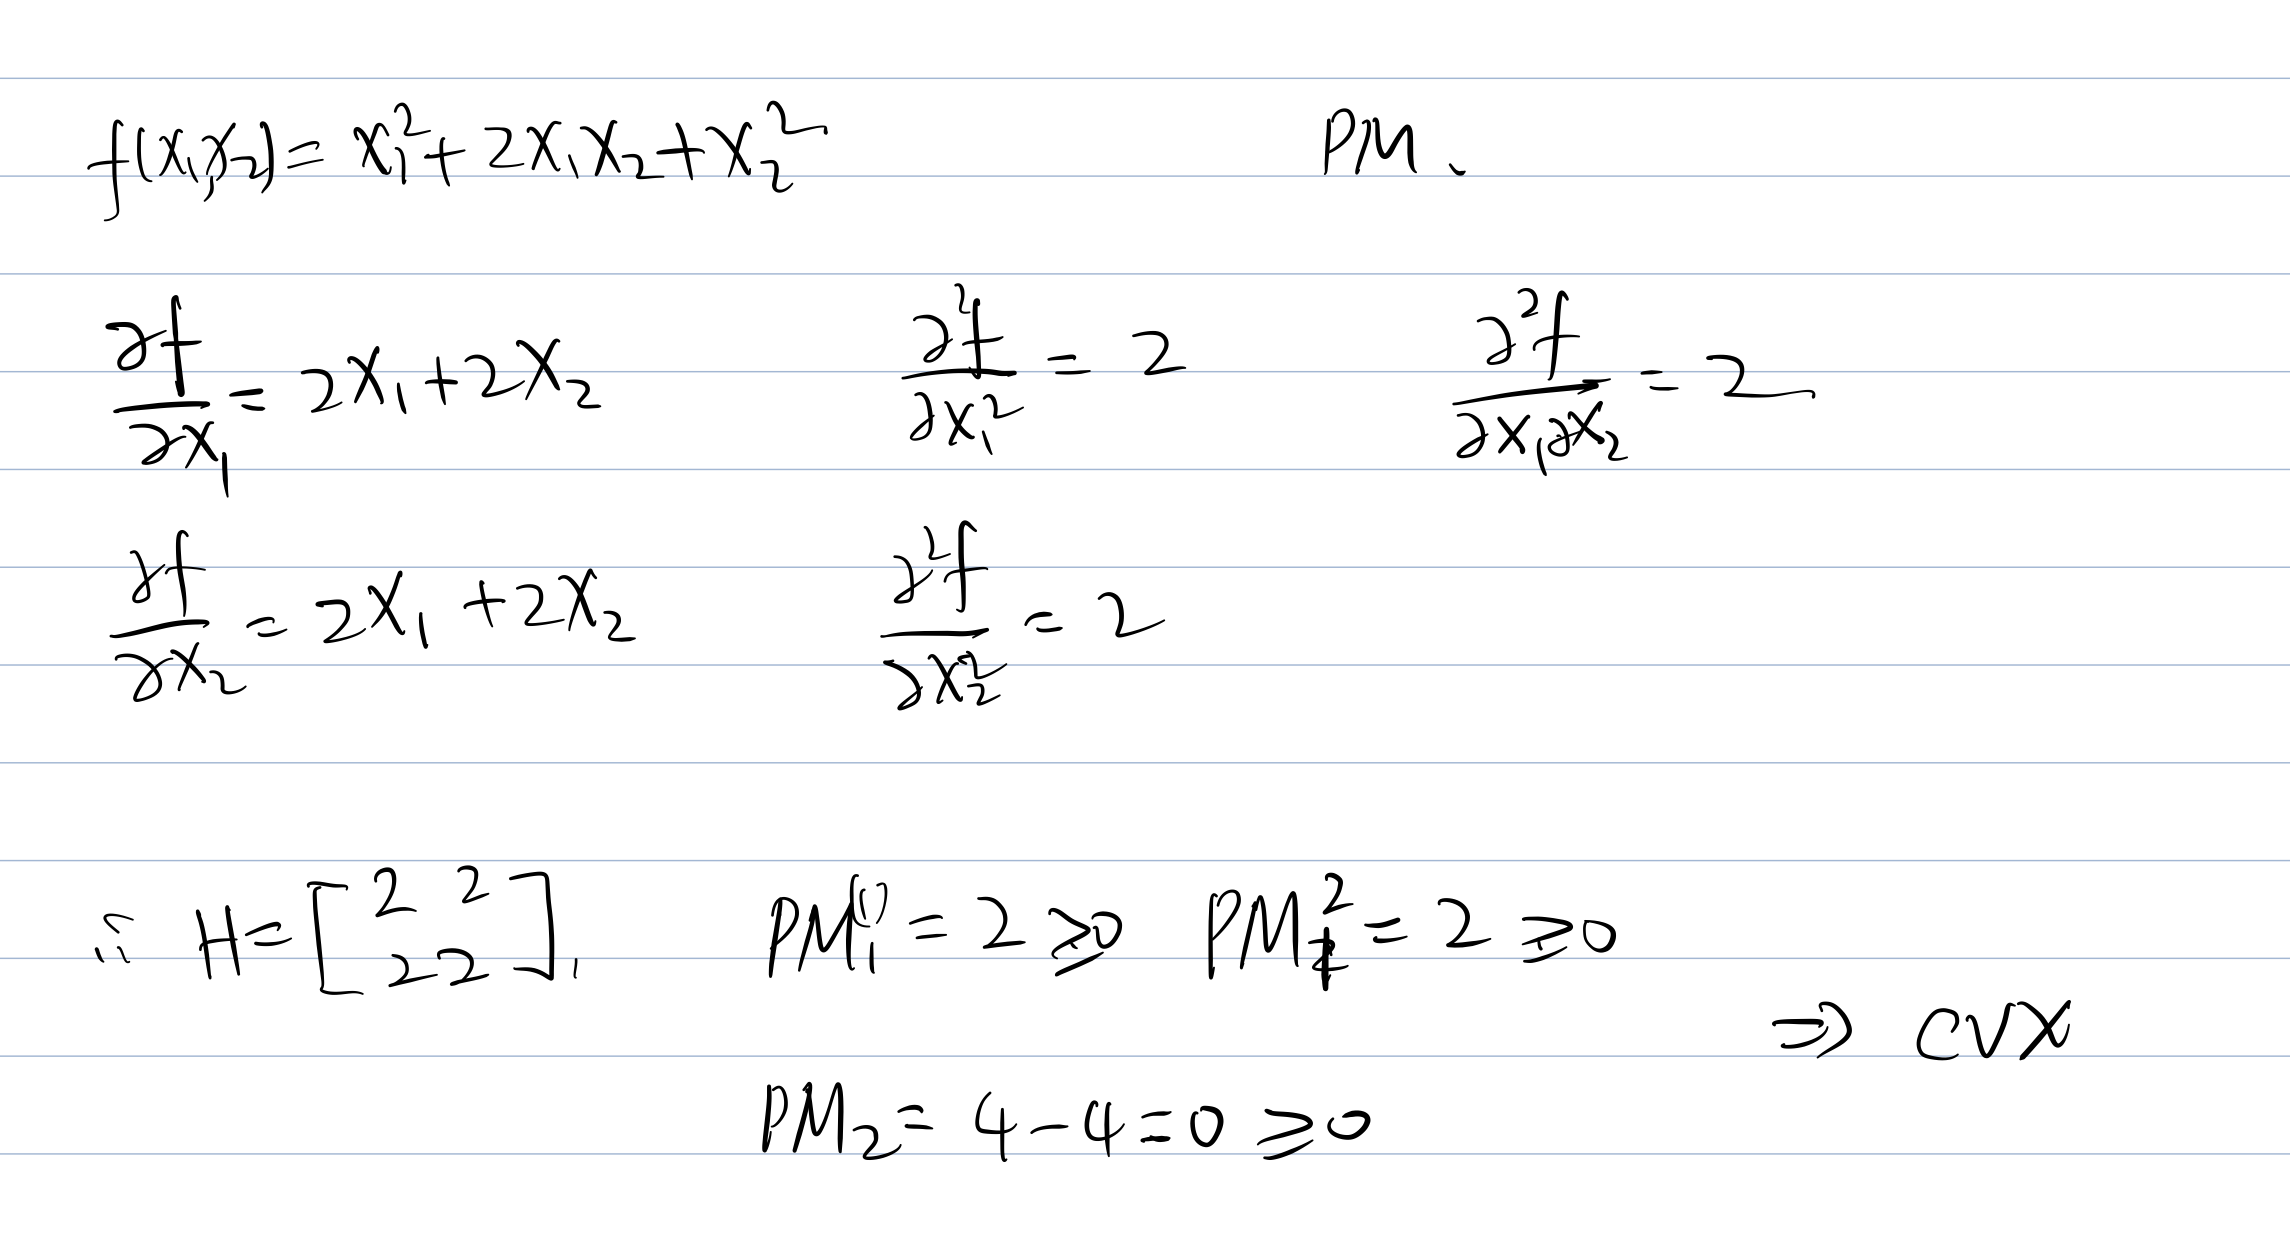 f(x₁,x₂) = x₁² + 2x₁x₂ + x₂² PM.
∂f/∂x₁ = 2x₁ + 2x₂ ∂²f/∂x₁² = 2 ∂²f/∂x₁∂x₂ = 2
∂f/∂x₂ = 2x₁ + 2x₂ ∂²f/∂x₂² = 2
∵ H = [2 2; 2 2], PM₁⁽¹⁾ = 2 ≥ 0 PM₁² = 2 ≥ 0
⇒ CVX
PM₂ = 4 - 4 = 0 ≥ 0